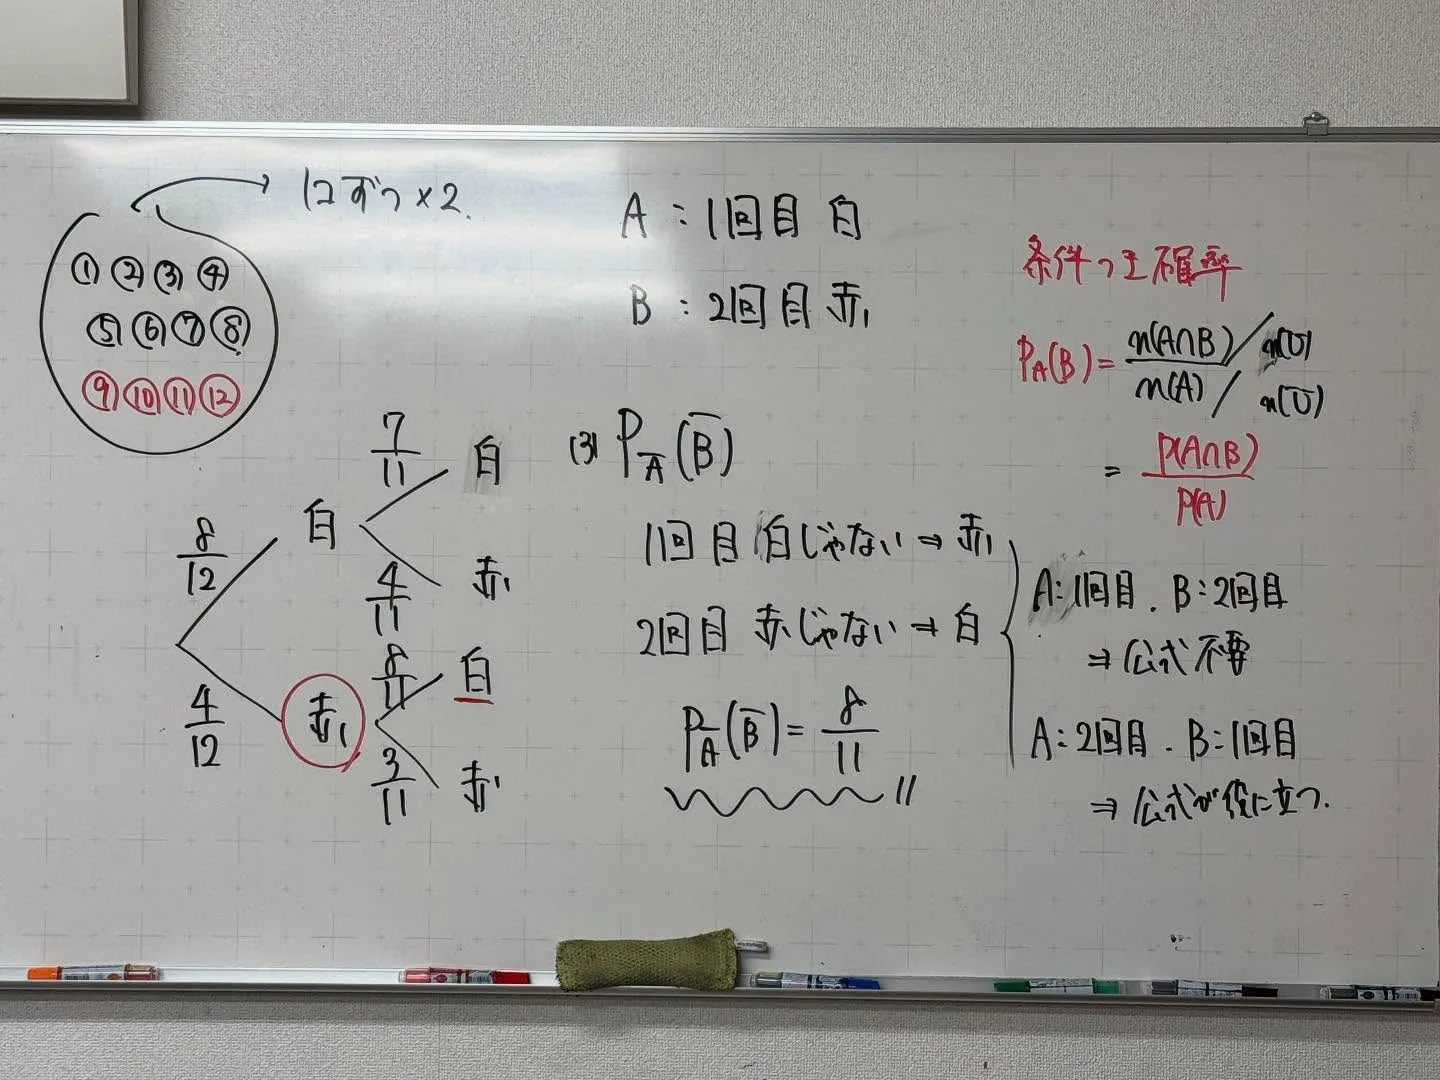 1コずつ×2.
① ② ③ ④
⑤ ⑥ ⑦ ⑧
⑨ ⑩ ⑪ ⑫
A : 1回目 白
B : 2回目 赤
条件つき確率
P_A(B) = n(A∩B) / n(U)
n(A) / n(U)
= P(A∩B)
P(A)
7/11 白
8/12 白
4/11 赤
8/11 白
4/12 赤
3/11 赤
(3) P_A̅(B̅)
1回目 白じゃない ⇒ 赤
2回目 赤じゃない ⇒ 白
P_A̅(B̅) = 8/11
A: 1回目. B: 2回目
⇒ 公式不要
A: 2回目. B: 1回目
⇒ 公式が役に立つ.